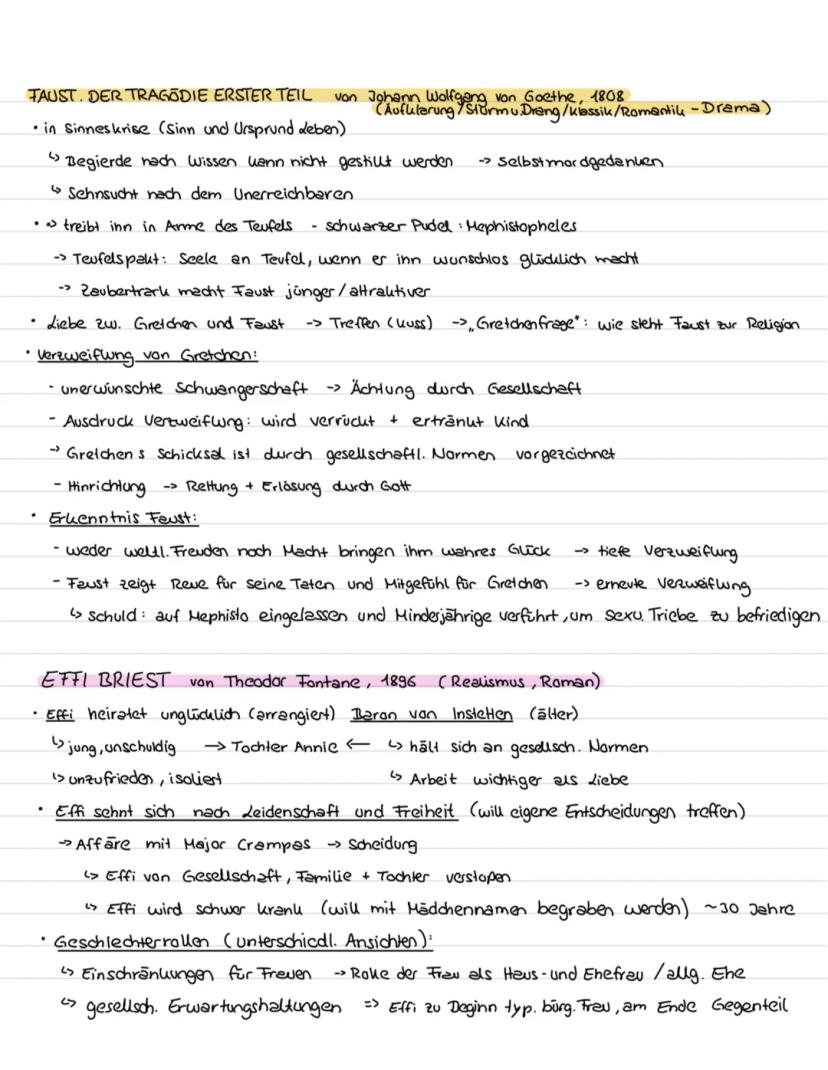 FAUST. DER TRAGÖDIE ERSTER TEIL von Johann Wolfgang von Goethe, 1808
(Aufklärung/Sturm u. Drang/Klassik/Romantik - Drama)
• in Sinneskrise (Sinn und Ursprund Leben)
↳ Begierde nach Wissen kann nicht gestillt werden -> Selbstmordgedanken
↳ Sehnsucht nach dem Unerreichbaren
• => treibt ihn in Arme des Teufels - schwarzer Pudel : Mephistopheles
-> Teufelspakt: Seele an Teufel, wenn er ihn wunschlos glücklich macht
-> Zaubertrank macht Faust jünger/attraktiver
• Liebe zw. Gretchen und Faust -> Treffen (Kuss) -> „Gretchenfrage": wie steht Faust zur Religion
• Verzweiflung von Gretchen:
- unerwünschte Schwangerschaft -> Ächtung durch Gesellschaft
- Ausdruck Verzweiflung: wird verrückt + ertränkt Kind
-> Gretchens Schicksal ist durch gesellschaftl. Normen vorgezeichnet
- Hinrichtung -> Rettung + Erlösung durch Gott
• Erkenntnis Faust:
- weder weltl. Freuden noch Macht bringen ihm wahres Glück -> tiefe Verzweiflung
- Faust zeigt Reue für seine Taten und Mitgefühl für Gretchen -> erneute Verzweiflung
↳ Schuld : auf Mephisto eingelassen und Minderjährige verführt, um sexu. Triebe zu befriedigen
EFFI BRIEST von Theodor Fontane, 1896 (Realismus, Roman)
• Effi heiratet unglücklich (arrangiert) Baron von Instetten (älter)
↳ jung, unschuldig -> Tochter Annie <- ↳ hält sich an gesellsch. Normen
↳ unzufrieden, isoliert ↳ Arbeit wichtiger als Liebe
• Effi sehnt sich nach Leidenschaft und Freiheit (will eigene Entscheidungen treffen)
-> Affäre mit Major Crampas -> Scheidung
↳ Effi von Gesellschaft, Familie + Tochter verstoßen
↳ Effi wird schwer krank (will mit Mädchennamen begraben werden) ~30 Jahre
• Geschlechterrollen (unterschiedl. Ansichten):
↳ Einschränkungen für Frauen -> Rolle der Frau als Haus- und Ehefrau / allg. Ehe
↳ gesellsch. Erwartungshaltungen => Effi zu Beginn typ. bürg. Frau, am Ende Gegenteil